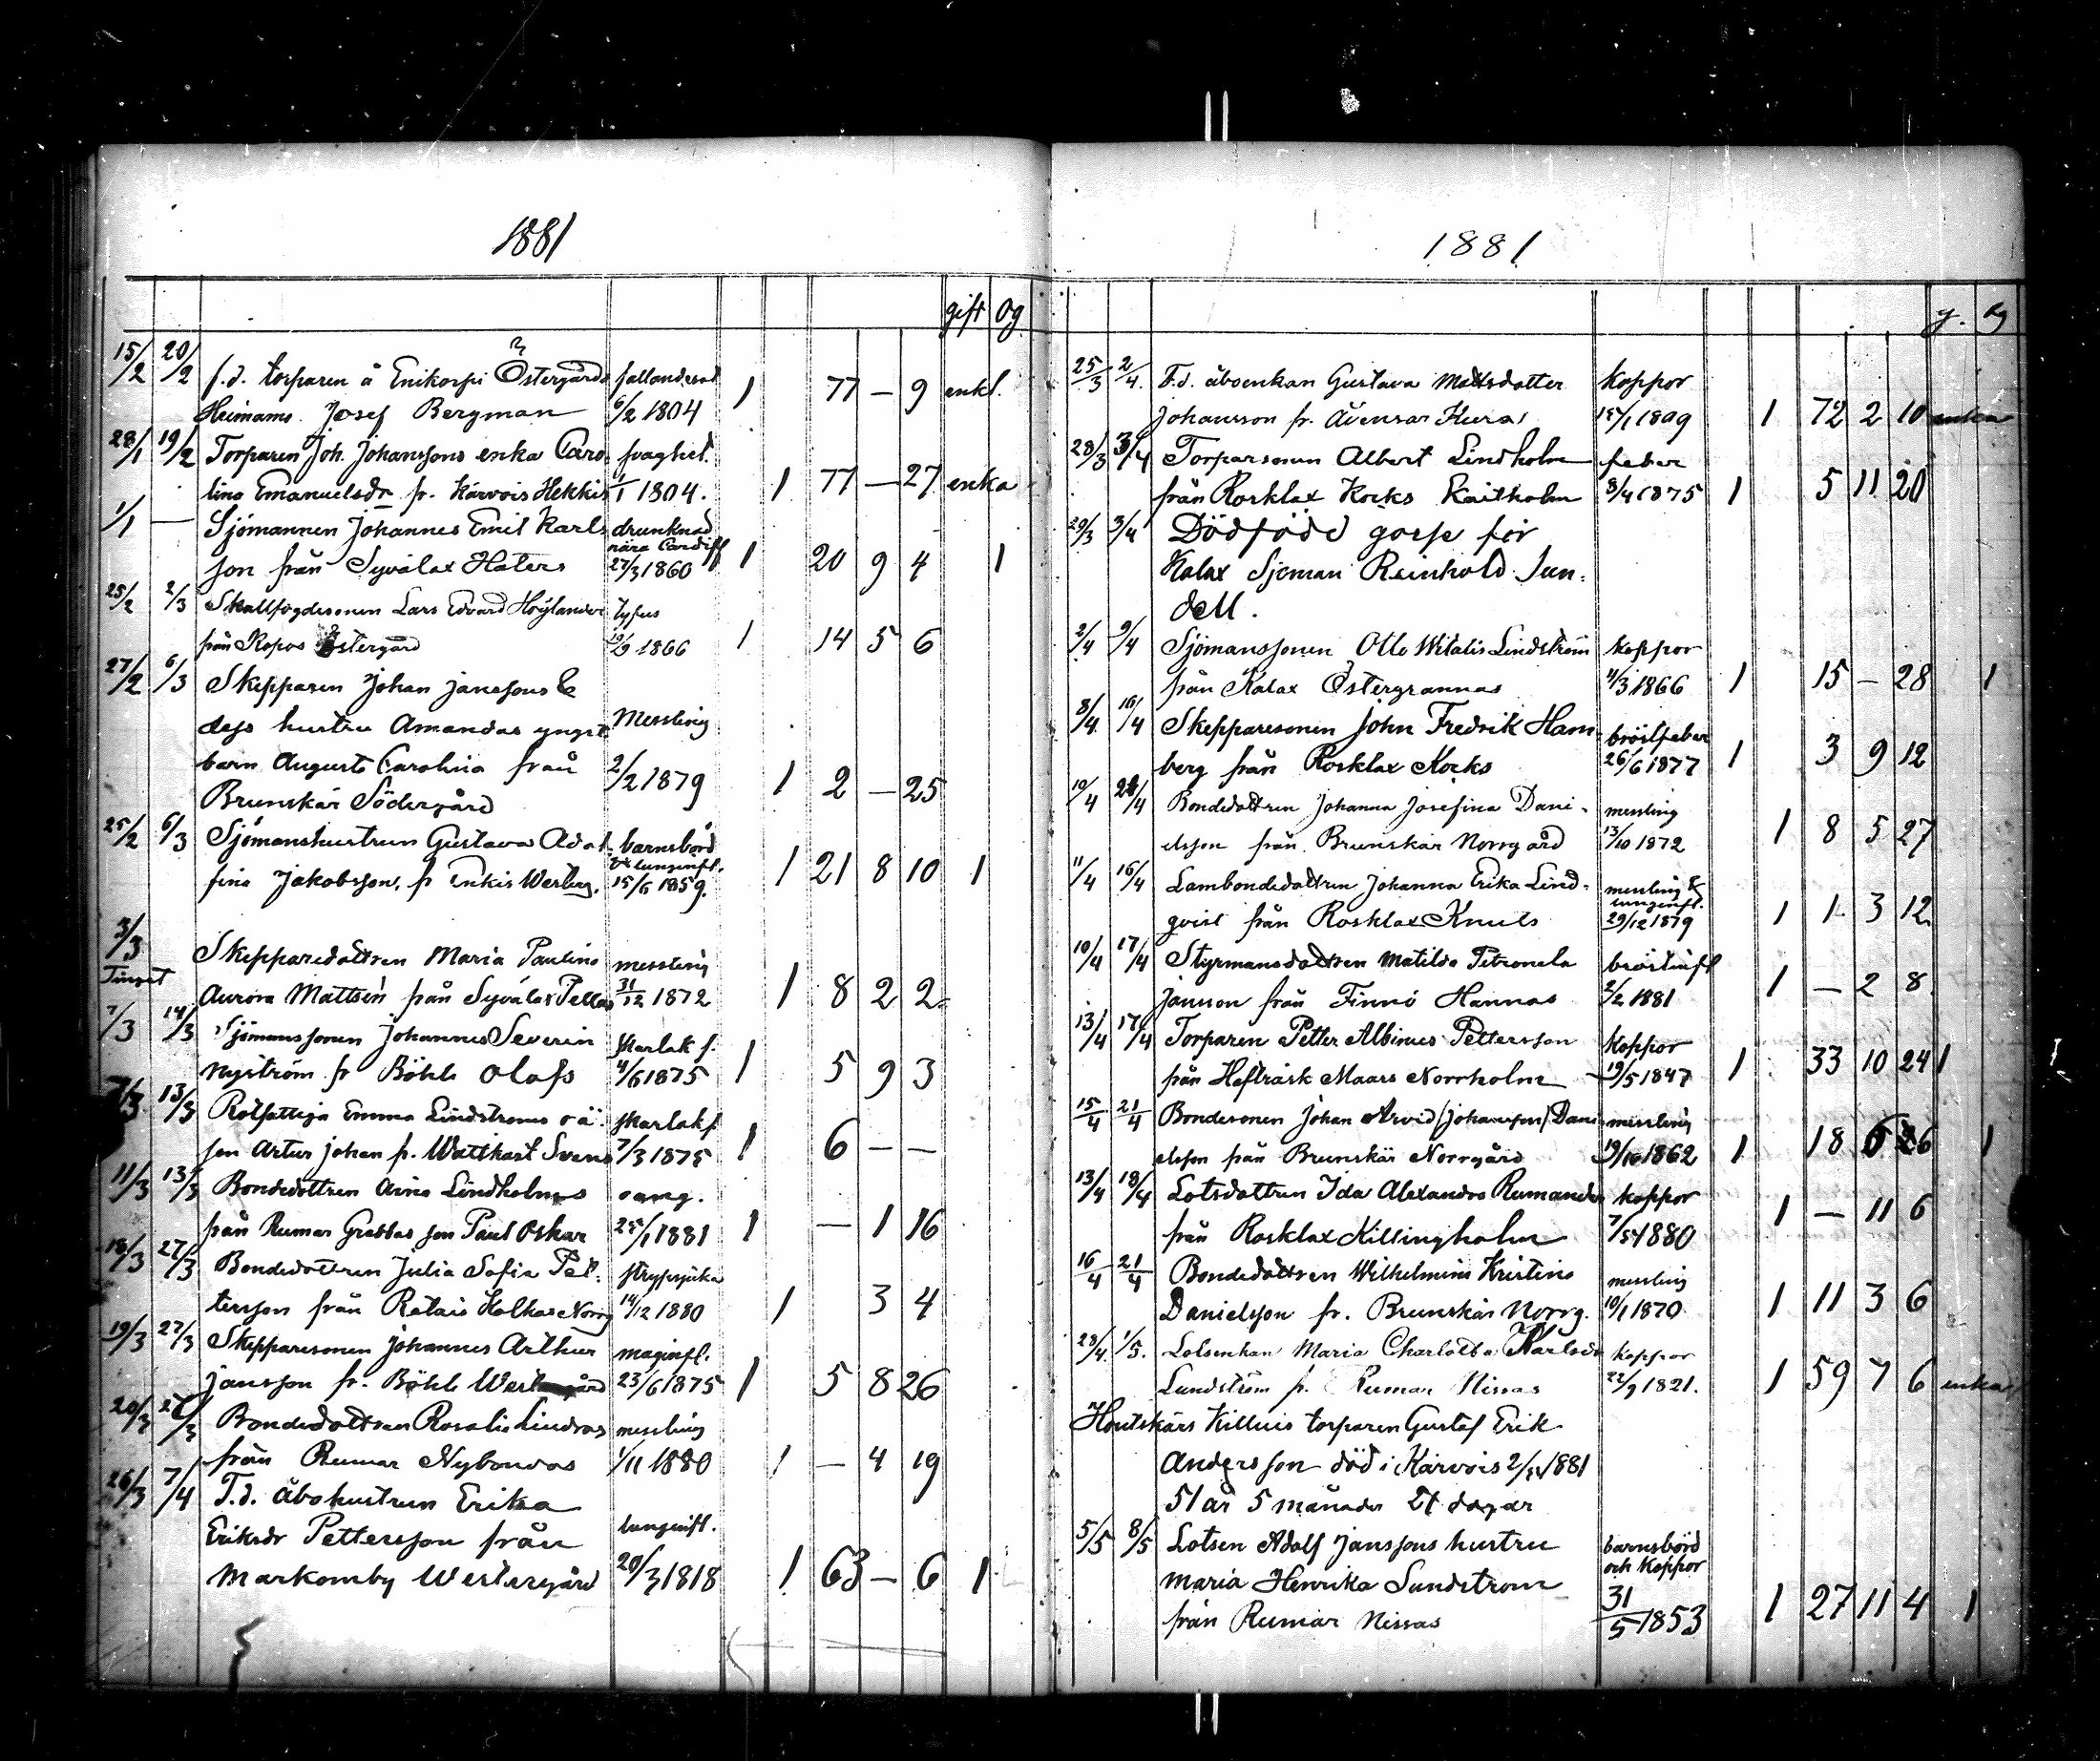 1881
gift og
15/2 20/2 f.d. torparen å Enikorpi Östergårds fallandesot
Heimans Josef Bergman 6/2 1804 1 77 — 9 enkl.
28/1 19/2 Torparen Joh. Johanssons enka Caro- svaghet.
lina Emanuelsdr fr. Kärvois Hekkis 1/1 1804. 1 77 — 27 enka
1/1 — Sjömannen Johannes Emil Karls drunknad
nära Cardiff
son från Syvälax Haters 27/3 1860 1 20 9 4 1
25/2 2/3 Skallfogdesonen Lars Edvard Höylander tyfus
från Kopos Östergård 19/9 1866 1 14 5 6
27/2 6/3 Skepparen Johan Janssons &
dess hustru Amandas yngst Messling
barn Augusta Carolina från 2/2 1879 1 2 — 25
Brunskär Södergård
25/2 6/3 Sjömanshustrun Gustava Adol- barnsbörd
& lunginfl.
fina Jakobsson, fr Enkis Westerg. 15/6 1859. 1 21 8 10 1
3/3 Skepparedottren Maria Paulina messling
Aurora Mattsén från Syvälax Pellas 31/12 1872 1 8 2 2
7/3 14/3 Sjömanssonen Johannes Severin skarlak f.
Nyström fr Böhle Olofs 4/6 1875 1 5 9 3
7/3 13/3 Rotfattiga Emma Lindströms o ä. skarlakf.
son Artur Johan fr. Wattkast Svens 7/3 1875 1 6 — —
11/3 13/3 Bondedottren Aina Lindholms oang.
från Rumar Grabbas son Paul Oskar 25/1 1881 1 — 1 16
18/3 27/3 Bondedottren Julia Sofia Pet- strypsjuka
tersson från Retais Kalkas Norrg 14/12 1880 1 3 4
19/3 27/3 Skepparesonen Johannes Arthur maginfl.
Jansson fr. Böhle Westergård 23/6 1875 1 5 8 26
20/3 27/3 Bondedottren Rosalie Lindros messling
från Rumar Nybondas 1/11 1880 1 — 4 19
26/3 7/4 F.d. åbohustrun Erika
Eriksdr Pettersson från lunginfl.
Markomby Westergård 20/3 1818 1 63 — 6 1
1881
g. og
25/3 2/4. F.d. åboenkan Gustava Mattsdotter koppor
Johansson fr. Åvensar Kuras 15/1 1809 1 72 2 10 enka
28/3 3/4 Torparsonen Albert Lindholm feber
från Rosklax Kocks Kaitholm 8/4 1875 1 5 11 20
29/3 3/4 Dödfödd gosse för
Kalax Sjöman Reinhold Sun-
dell.
2/4 9/4 Sjömanssonen Otto Witalis Lindström koppor
från Kalax Östergrannas 4/3 1866 1 15 — 28 1
8/4 16/4 Skepparesonen John Fredrik Ham- bröstfeber
berg från Rosklax Kocks 26/6 1877 1 3 9 12
10/4 21/4 Bondedottren Johanna Josefina Dani- messling
elsson från Brunskär Norrgård 13/10 1872 1 8 5 27
11/4 16/4 Lambondedottren Johanna Erika Lind- messling &
lunginfl.
qvist från Rosklax Knuts 29/12 1879 1 1 3 12
10/4 17/4 Styrmansdottren Matilda Petronela bröstinfl
Jansson från Finnö Hannas 2/2 1881 1 — 2 8
13/4 17/4 Torparen Petter Albinus Pettersson koppor
från Hefträsk Maars Norrholm 19/5 1847 1 33 10 24 1
15/4 21/4 Bondesonen Johan Arvid (Johansson) Dani- messling
elsson från Brunskär Norrgård 19/10 1862 1 18 5 26 1
13/4 18/4 Lotsdottren Ida Alexandra Rumander koppor
från Rosklax Killingholm 7/5 1880 1 — 11 6
16/4 21/4 Bondedottren Wilhelmina Kristina messling
Danielsson fr. Brunskär Norrg. 10/1 1870 1 11 3 6
28/4 1/5. Lotsenkan Maria Charlotta Karlsdr koppor
Lundström fr. Rumar Nissas 22/9 1821. 1 59 7 6 enka
Houtskärs Killuis torparen Gustaf Erik
Andersson död i Kärvois 2/4 1881
51 år 5 månader 21 dagar
5/5 8/5 Lotsen Adolf Janssons hustru barnsbörd
och koppor
Maria Henrika Sundström 31/5 1853 1 27 11 4 1
från Rumar Nissas